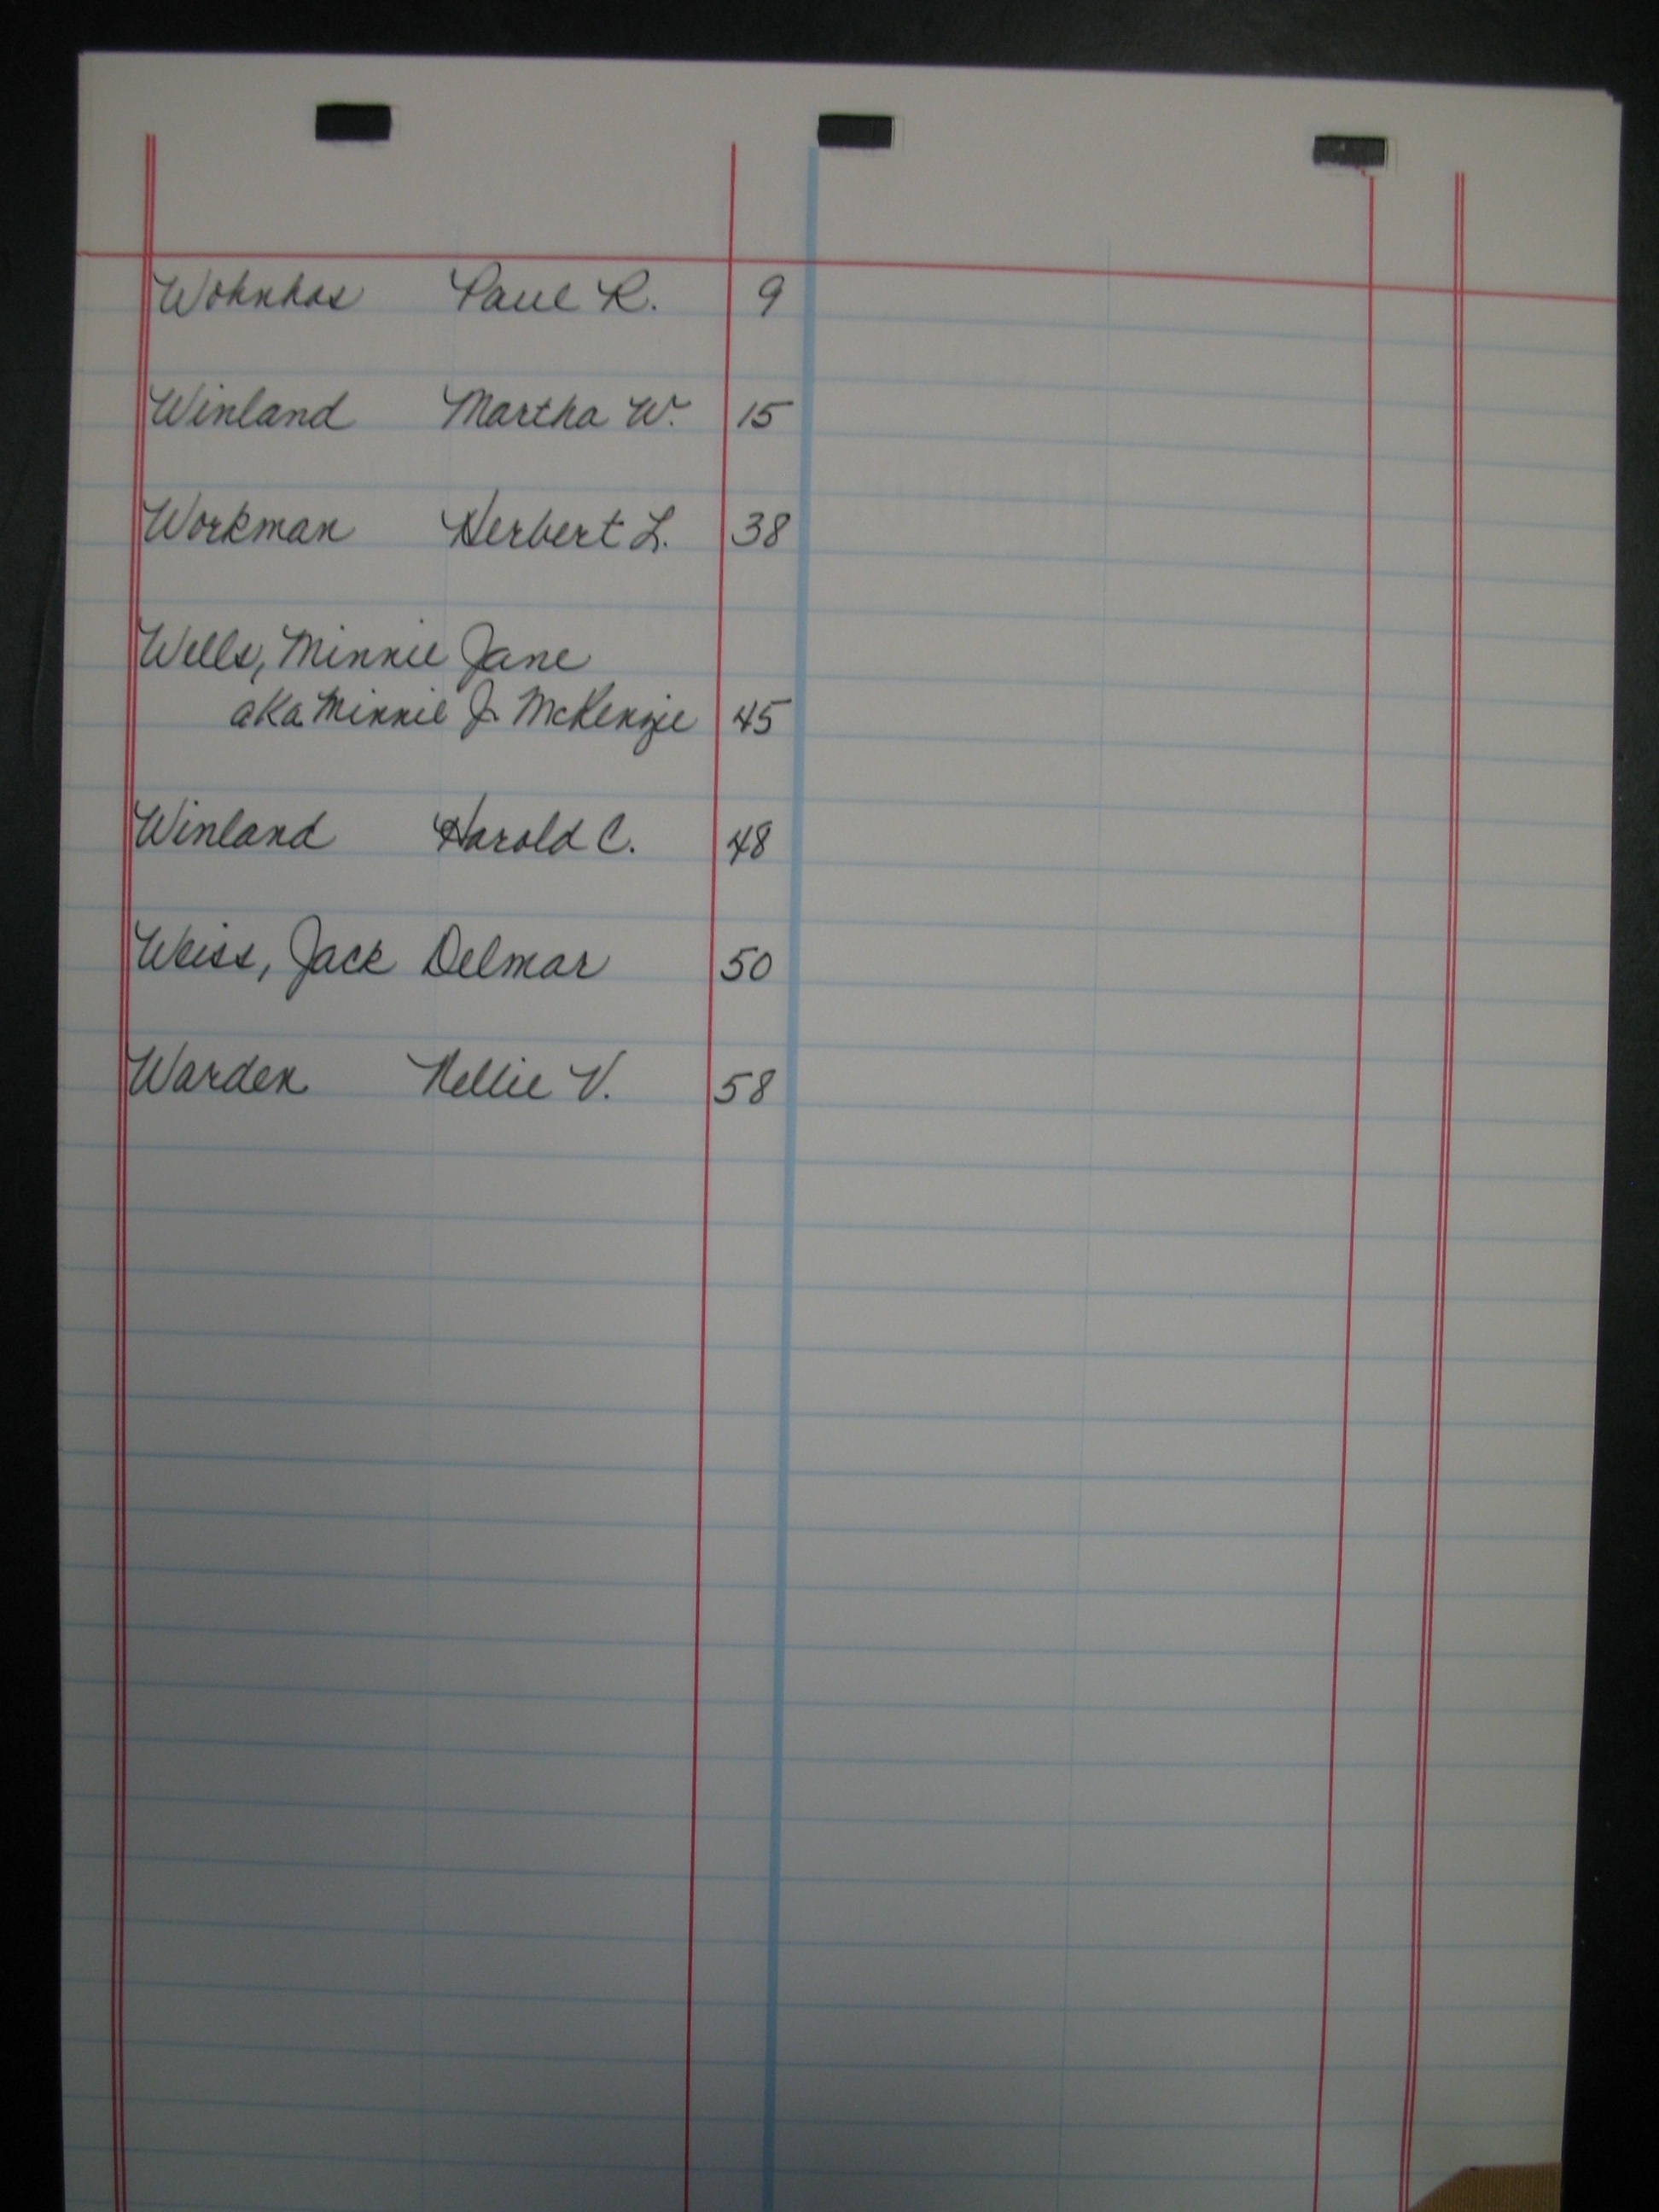 Wohnhas Paul R. 9
Winland Martha W. 15
Workman Herbert L. 38
Wells, Minnie Jane
aka Minnie J. McKenzie 45
Winland Harold C. 48
Weiss, Jack Delmar 50
Warden Nellie V. 58